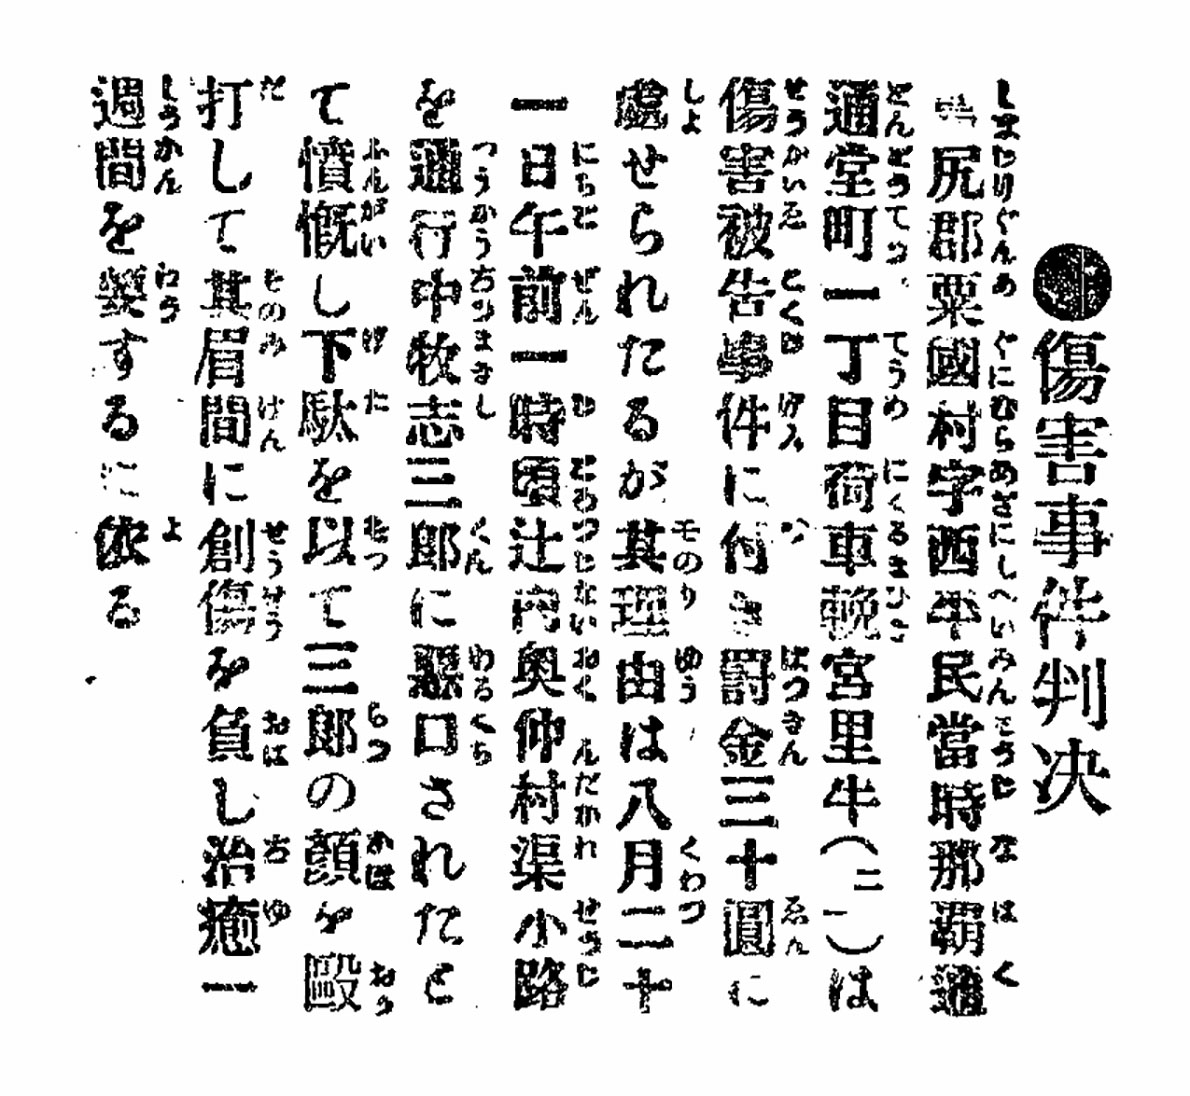 ●傷害事件判决
島尻郡粟國村字西平民當時那覇區
通堂町一丁目荷車輓宮里牛(二一)は
傷害被告事件に付き罰金三十圓に
處せられたるが其理由は八月二十
一日午前一時頃辻內奥仲村渠小路
を通行中牧志三郎に惡口されたと
て憤慨し下駄を以て三郎の顔を毆
打して其眉間に創傷を負し治癒一
週間を要するに依る